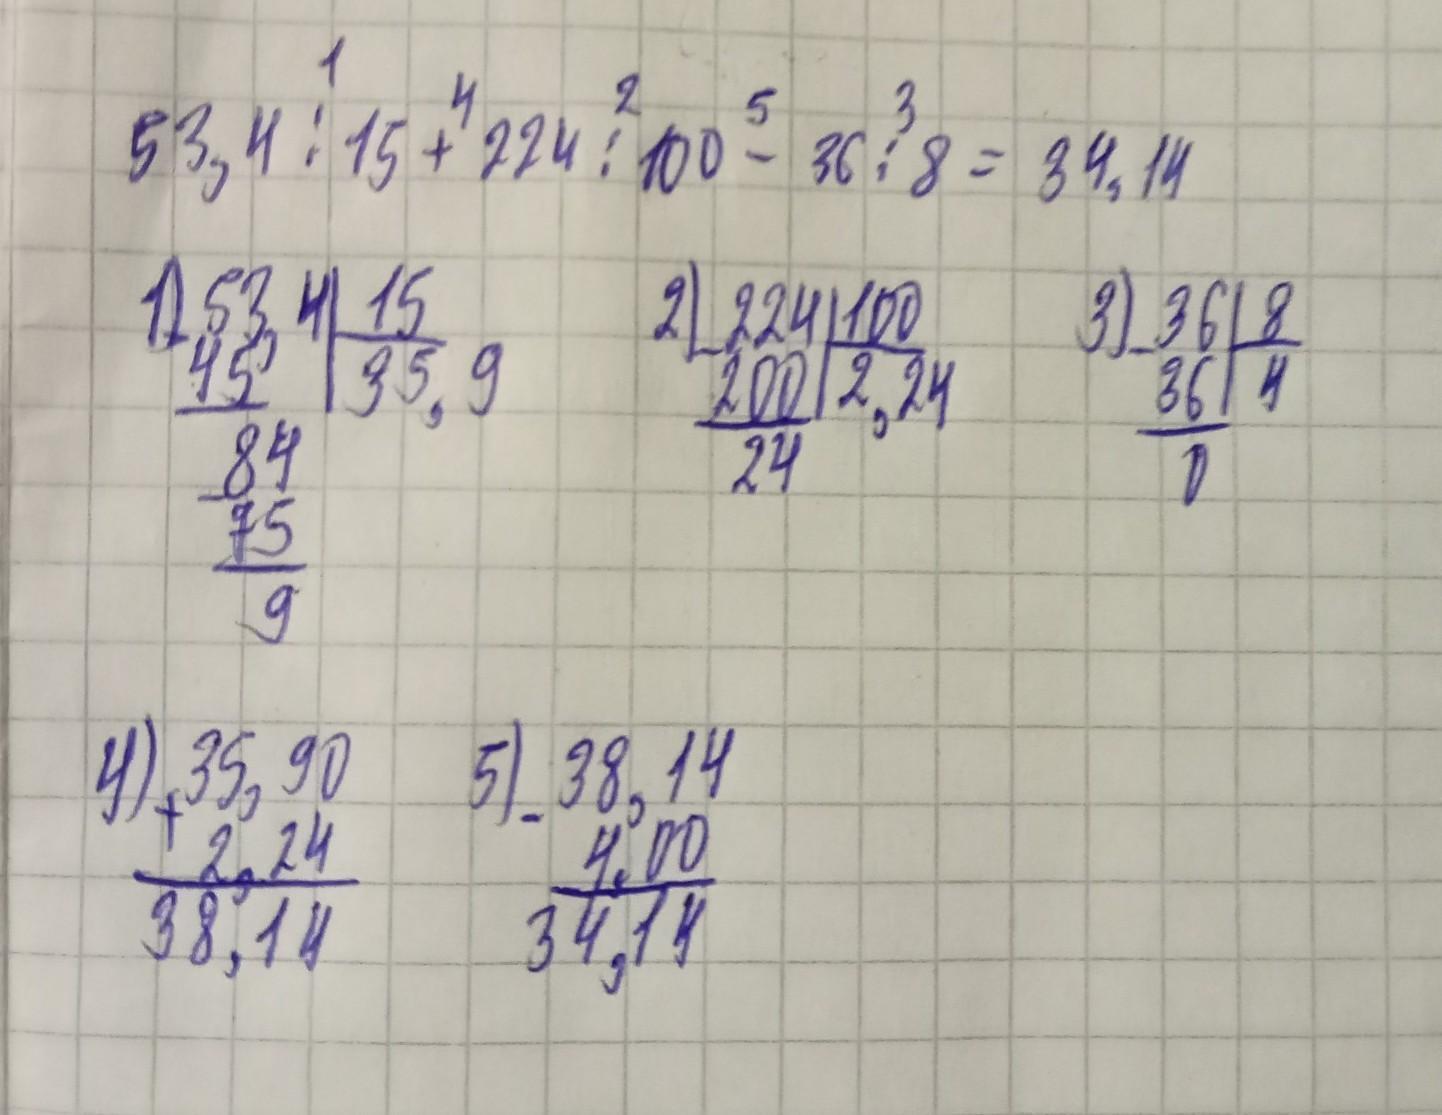 1 4 2 5 3
53,4 : 15 + 224 : 100 - 36 : 8 = 34,14
1) - 53,4 | 15 2) - 224 | 100 3) - 36 | 8
45 | 35,9 200 | 2,24 36 | 4
- 84 24 0
75
9
4) + 35,90 5) - 38,14
2,24 4,00
38,14 34,14